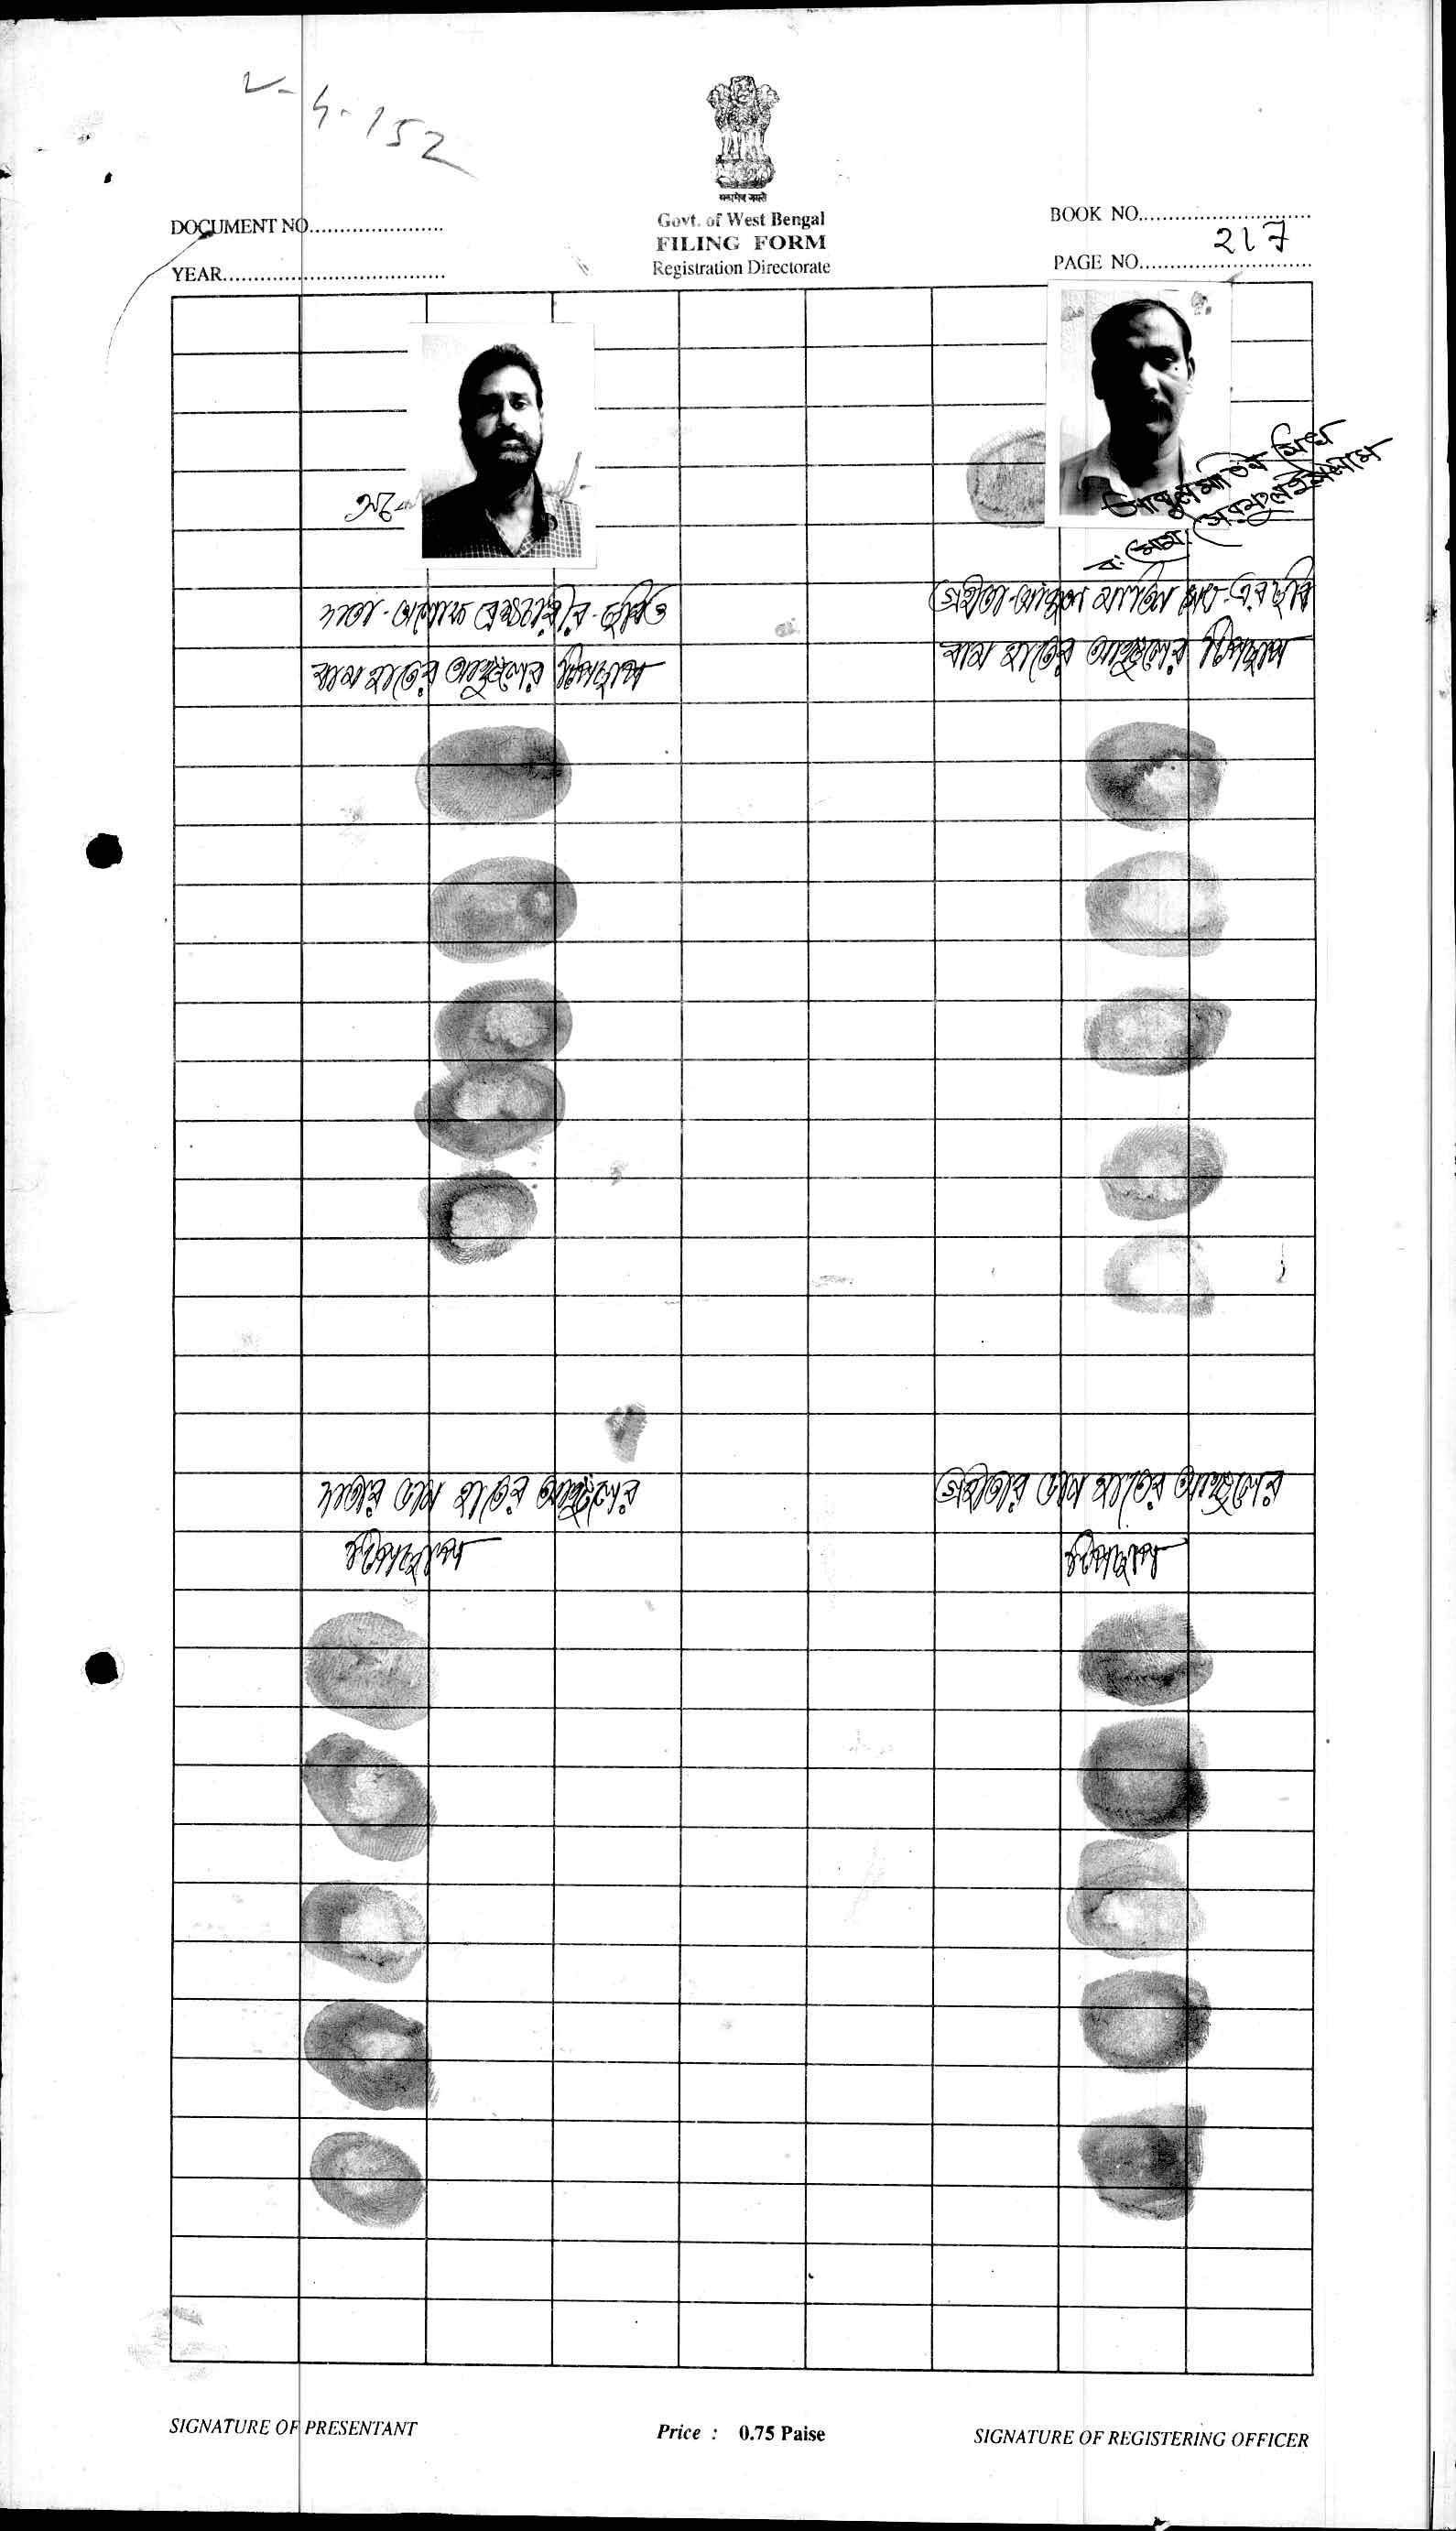 V-4-152
सत्यमेव जयते
Govt. of West Bengal
FILING FORM
Registration Directorate
DOCUMENT NO......................
YEAR....................................
BOOK NO............................
217
PAGE NO............................
দাতা-
বাম হাতের আঙ্গুলের টিপছাপ
গ্রহীতা-আব্দুল মাতিন
বাম হাতের আঙ্গুলের টিপছাপ
দাতার ডান হাতের আঙ্গুলের
টিপছাপ
গ্রহীতার ডান হাতের আঙ্গুলের
টিপছাপ
SIGNATURE OF PRESENTANT
Price : 0.75 Paise
SIGNATURE OF REGISTERING OFFICER